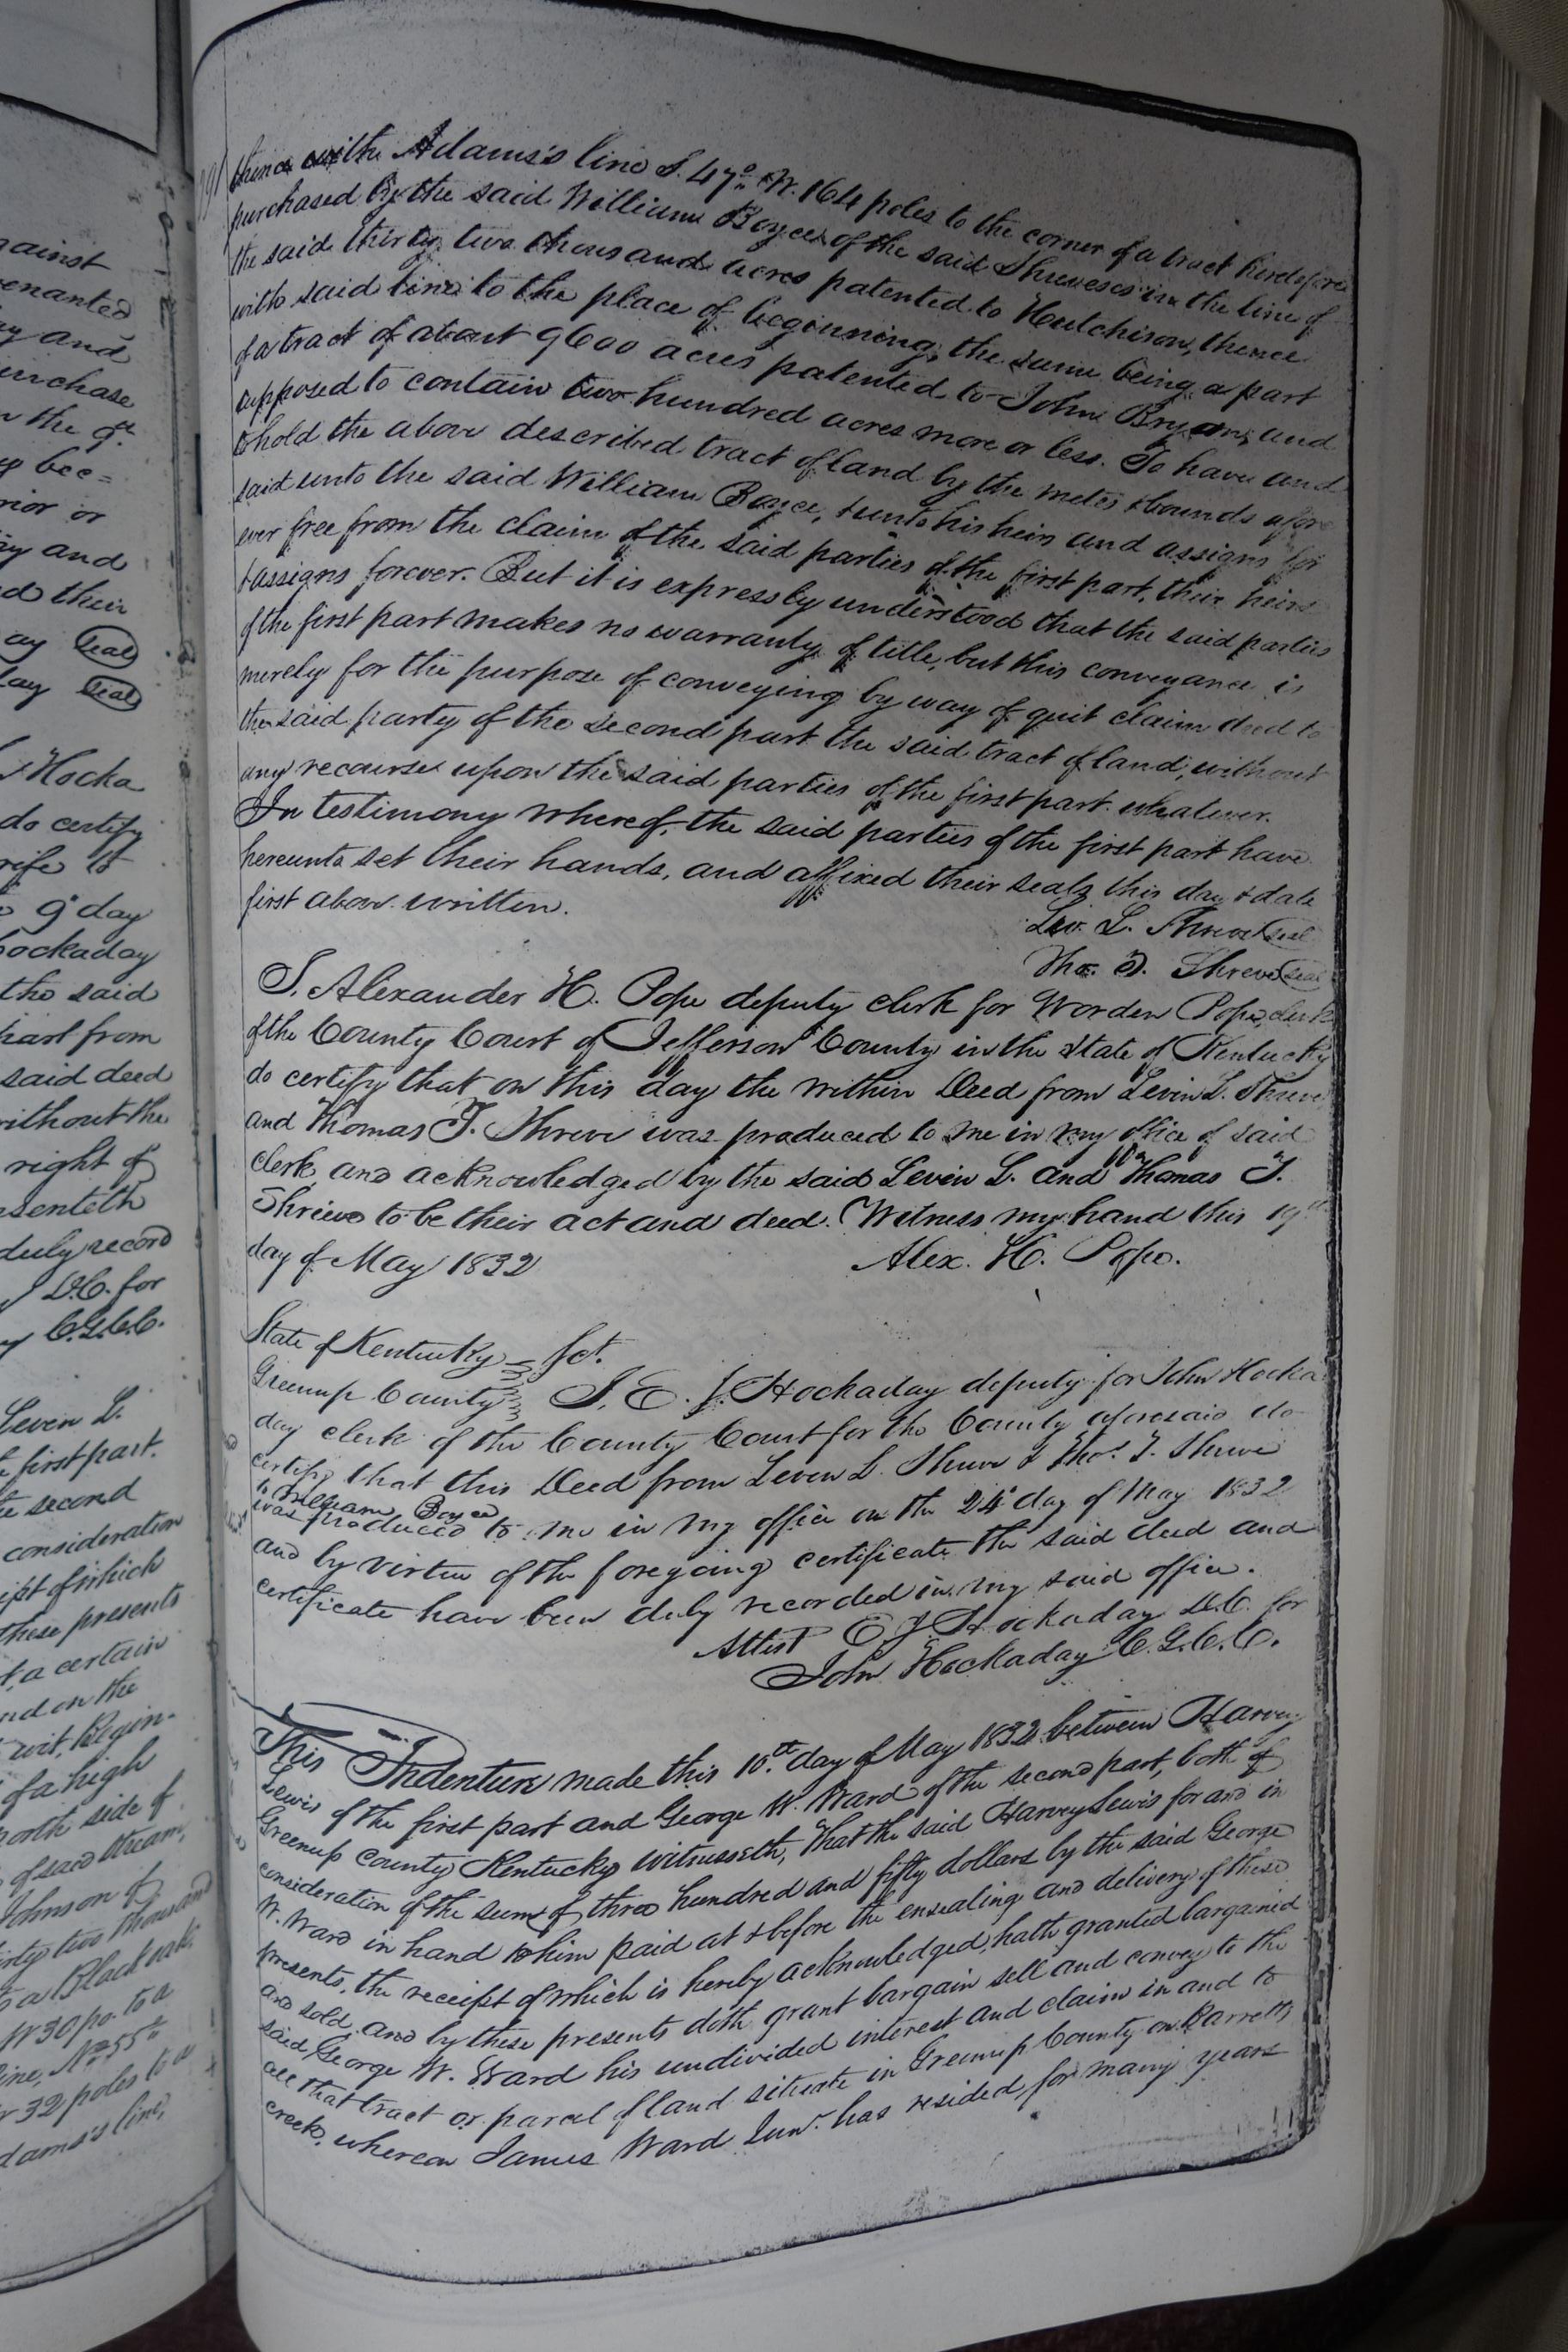 gainst
enanted
y and
urchase
n the 9th
y bee=
rior or
ry and
d their
ay Seal
lay Seal
Hocka
do certify
rife to
9th day
ockaday
the said
part from
said deed
without the
right of
senteth
duly record
D.C. for
C.G.C.C.
Leven L.
e first part.
e second
consideration
ipt of which
these presents
t, a certain
nd on the
wit, Begin-
of a high
north side of
of said stream,
Johnson of
irty two thousand
to a Black oak,
W 30 po. to a
line, N. 55
32 poles to a
dams's line,
thence with Adams's line S. 47° W. 164 poles to the corner of a tract heretofore
purchased by the said William Boyce of the said Shreves's in the line of
the said thirty two thousand acres patented to Hutchison, thence
with said line to the place of beginning, the same being a part
of a tract of about 9600 acres patented to John Bryan, and
supposed to contain two hundred acres more or less. To have and
to hold the above described tract of land by the metes & bounds afore
said unto the said William Boyce, & unto his heirs and assigns for
ever free from the claim of the said parties of the first part, their heirs
& assigns forever. But it is expressly understood that the said parties
of the first part makes no warranty of title, but this conveyance is
merely for the purpose of conveying by way of quit claim deed to
the said party of the second part the said tract of land, without
any recourse upon the said parties of the first part whatever.
In testimony whereof, the said parties of the first part have
hereunto set their hands, and affixed their seals this day & date
first above written.
Lev. L. Shreve Seal
Tho. T. Shreve Seal
I, Alexander H. Pope deputy clerk for Worden Pope, clerk
of the County Court of Jefferson County in the State of Kentucky
do certify that on this day the within Deed from Levin L. Shreve
and Thomas T. Shreve was produced to me in my office of said
clerk, and acknowledged by the said Levin L. and Thomas T.
Shreve to be their act and deed. Witness my hand this 19th
day of May 1832
Alex. H. Pope.
State of Kentucky Sct.
Greenup County I, E. J. Hockaday deputy for John Hocka
day clerk of the County Court for the County aforesaid do
certify that this Deed from Leven L. Shreve & Thos. T. Shreve
to William Boyce
was produced to me in my office on the 24th day of May 1832
and by virtue of the foregoing certificate the said deed and
certificate have been duly recorded in my said office.
Attest E J Hockaday D.C. for
John Hockaday C.G.C.C.
This Indenture made this 10th day of May 1832 between Harvey
Lewis of the first part and George W. Ward of the second part, both of
Greenup County Kentucky witnesseth, That the said Harvey Lewis for and in
consideration of the sum of three hundred and fifty dollars by the said George
W. Ward in hand to him paid at & before the ensealing and delivery of these
presents, the receipt of which is hereby acknowledged, hath granted bargained
and sold, and by these presents doth grant bargain sell and convey to the
said George W. Ward his undivided interest and claim in and to
all that tract or parcel of land situate in Greenup County on Barretts
creek, whereon James Ward Junr. has resided, for many years